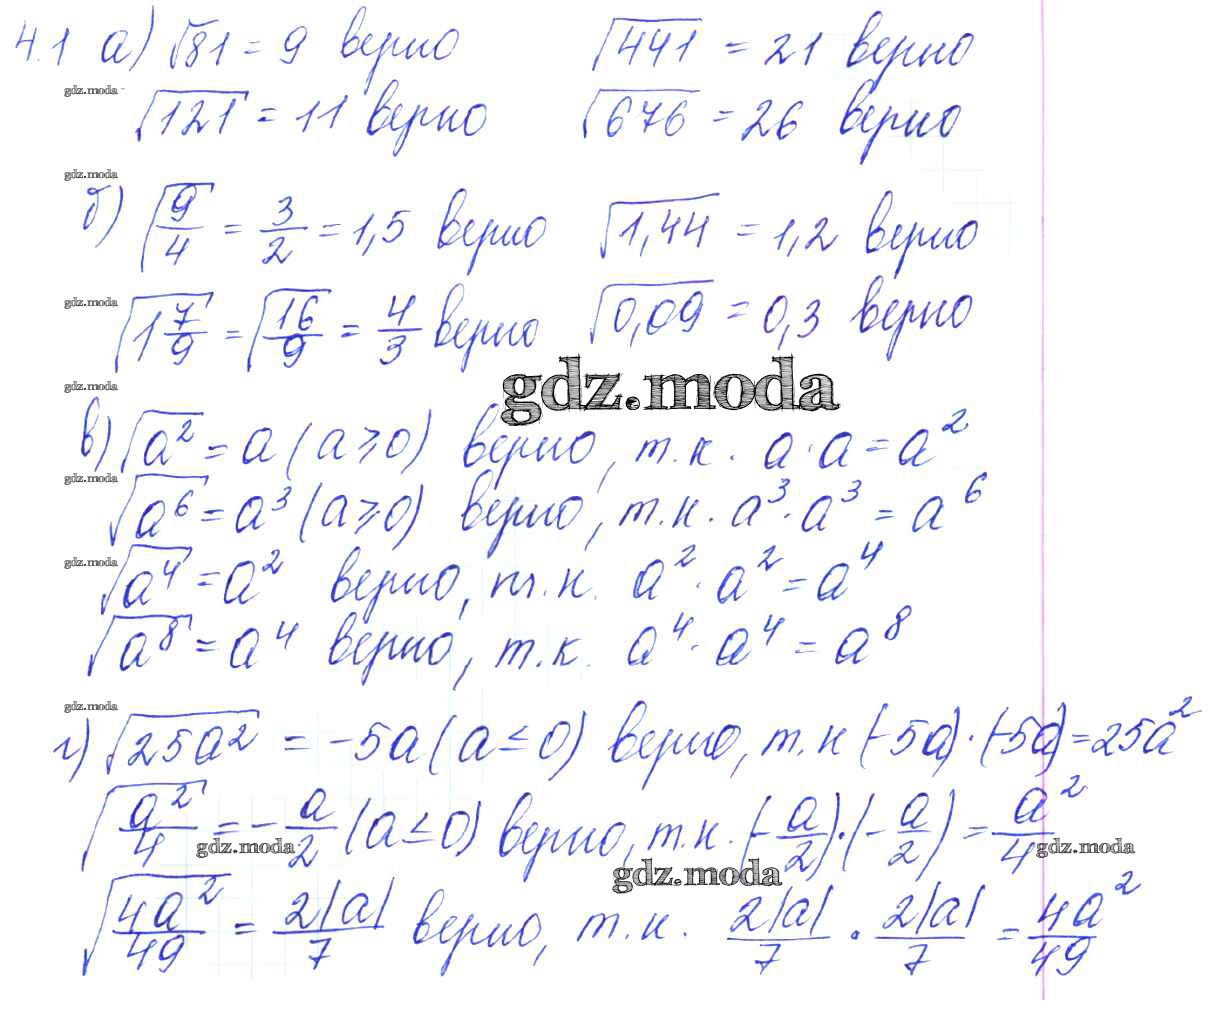 4.1 а) √81 = 9 верно √441 = 21 верно
gdz.moda
√121 = 11 верно √676 = 26 верно
gdz.moda
б) √(9/4) = 3/2 = 1,5 верно √1,44 = 1,2 верно
gdz.moda
√(1 7/9) = √(16/9) = 4/3 верно √0,09 = 0,3 верно
gdz.moda
gdz.moda
в) √a² = a (a ≥ 0) верно, т.к. a · a = a²
gdz.moda
√a⁶ = a³ (a ≥ 0) верно, т.к. a³ · a³ = a⁶
gdz.moda
√a⁴ = a² верно, т.к. a² · a² = a⁴
√a⁸ = a⁴ верно, т.к. a⁴ · a⁴ = a⁸
gdz.moda
г) √25a² = -5a (a ≤ 0) верно, т.к (-5a) · (-5a) = 25a²
√(a²/4) = -a/2 (a ≤ 0) верно, т.к. (-a/2) · (-a/2) = a²/4
gdz.moda
gdz.moda
gdz.moda
√(4a²/49) = 2|a|/7 верно, т.к. 2|a|/7 · 2|a|/7 = 4a²/49